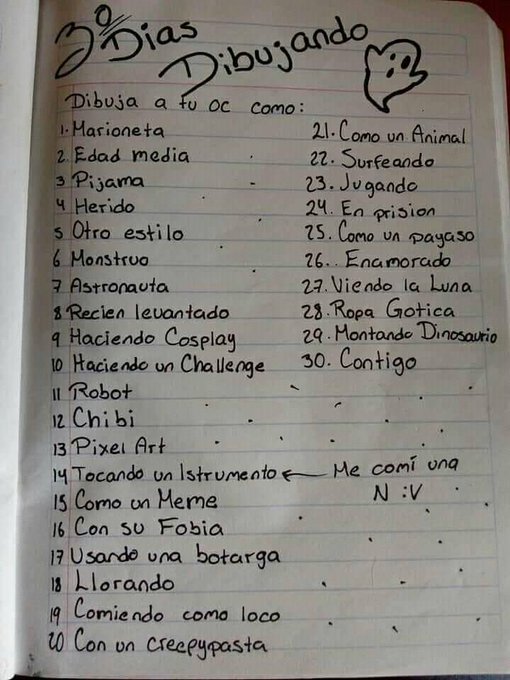 30 Días
Dibujando
Dibuja a tu oc como:
1. Marioneta
2. Edad media
3 Pijama
4 Herido
5 Otro estilo
6 Monstruo
7 Astronauta
8 Recien levantado
9 Haciendo Cosplay
10 Haciendo un Challenge
11 Robot
12 Chibi
13 Pixel Art
14 Tocando un Istrumento ← Me comí una
N :V
15 Como un Meme
16 Con su Fobia
17 Usando una botarga
18 Llorando
19 Comiendo como loco
20 Con un creepypasta
21. Como un Animal
22. Surfeando
23. Jugando
24. En prision
25. Como un payaso
26. Enamorado
27. Viendo la Luna
28. Ropa Gotica
29. Montando Dinosaurio
30. Contigo